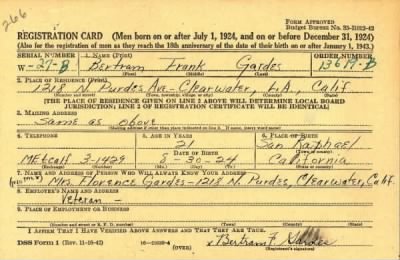 266
FORM APPROVED
Budget Bureau No. 33-R112-42
REGISTRATION CARD (Men born on or after July 1, 1924, and on or before December 31, 1924)
(Also for the registration of men as they reach the 18th anniversary of the date of their birth on or after January 1, 1943.)
SERIAL NUMBER 1. NAME (Print) ORDER NUMBER
W-27-B Bertram Frank Gardes 13617-B
(First) (Middle) (Last)
2. PLACE OF RESIDENCE (Print)
1218 N. Purdes Ave - Clearwater, LA, Calif.
[THE PLACE OF RESIDENCE GIVEN ON LINE 2 ABOVE WILL DETERMINE LOCAL BOARD
JURISDICTION; LINE 2 OF REGISTRATION CERTIFICATE WILL BE IDENTICAL]
3. MAILING ADDRESS
Same as above
4. TELEPHONE 5. AGE IN YEARS 6. PLACE OF BIRTH
21 San Raphael
DATE OF BIRTH
METcalf 3-1429 8-30-24 California
7. NAME AND ADDRESS OF PERSON WHO WILL ALWAYS KNOW YOUR ADDRESS
Mrs. Florence Gardes - 1218 N. Purdes, Clearwater, Calif.
8. EMPLOYER'S NAME AND ADDRESS
Veteran -
9. PLACE OF EMPLOYMENT OR BUSINESS
(Number and street or R. F. D. number) (Town) (County) (State)
I AFFIRM THAT I HAVE VERIFIED ABOVE ANSWERS AND THAT THEY ARE TRUE.
DSS Form 1 (Rev. 11-16-42) (OVER) x Bertram F Gardes